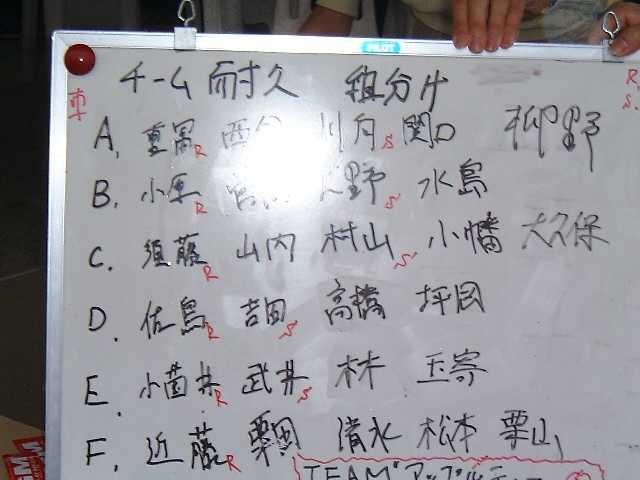 PILOT
チーム耐久 組分け
車 R. S.
A. 重冨R 西 川内S 関口 柳野
B. 小原R 宮 野S 水島
C. 須藤R 山内 村山S 小幡 大久保
D. 佐鳥R 吉田S 高橋 坪田
E. 小茴井R 武井S 林 玉寄
F. 近藤R 栗田 清水 松本 栗山
TEAM アップルティー